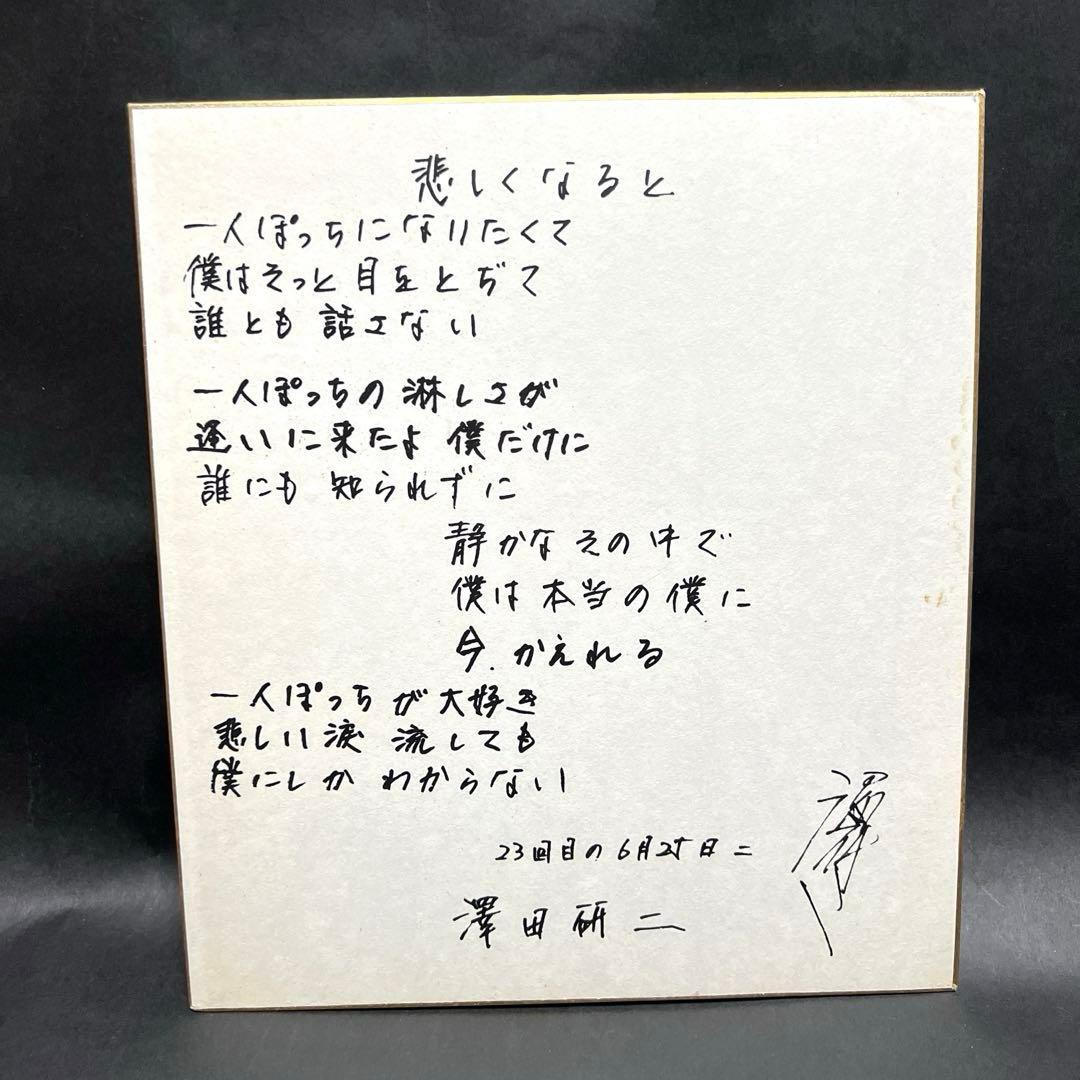 悲しくなると
一人ぽっちになりたくて
僕はそっと目をとぢて
誰とも話さない
一人ぽっちの淋しさが
逢いに来たよ 僕だけに
誰にも知られずに
静かなその中で
僕は本当の僕に
今.かえれる
一人ぽっちが大好き
悲しい涙 流しても
僕にしか わからない
23回目の6月25日ニ
澤田研二